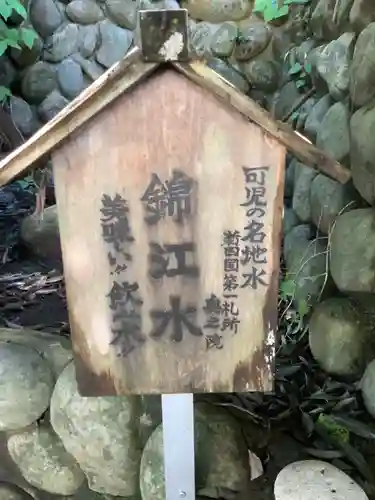 可児の名地水
新四国第一札所
真三院
錦江水
美味しい飲料水